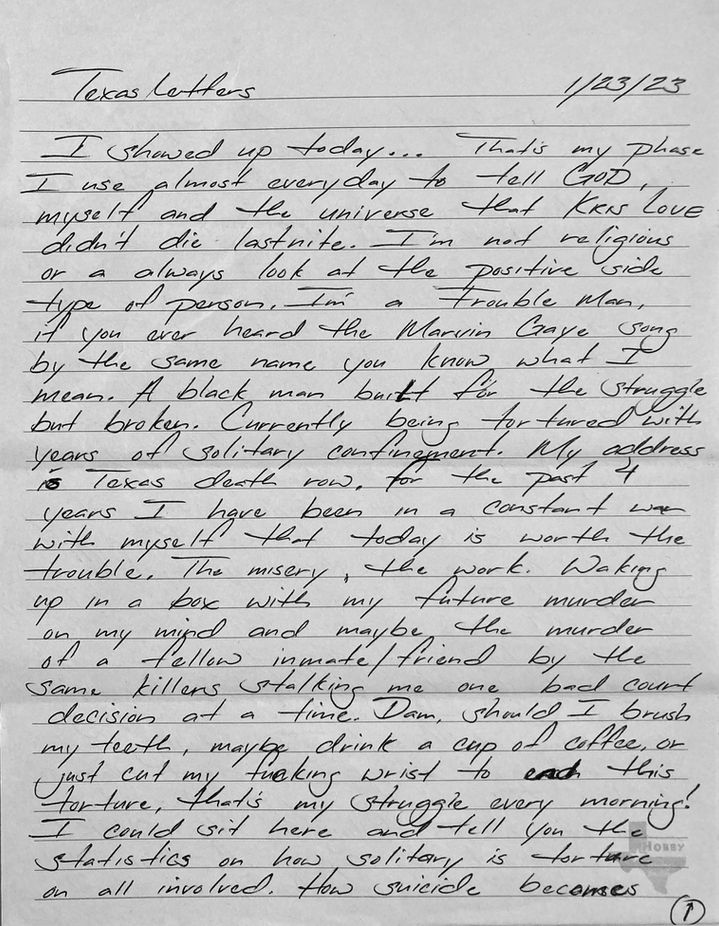 Texas Letters 1/23/23
I showed up today... That's my phase
I use almost everyday to tell GOD,
myself and the universe that KRIS LOVE
didn't die lastnite. I'm not religious
or a always look at the positive side
type of person. I'm a Trouble Man,
if you ever heard the Marvin Gaye song
by the same name you know what I
mean. A black man built for the struggle
but broken. Currently being tortured with
years of solitary confinement. My address
is Texas death row, for the past 4
years I have been in a constant war
with myself that today is worth the
trouble. The misery, the work. Waking
up in a box with my future murder
on my mind and maybe the murder
of a fellow inmate/friend by the
same killers stalking me one bad court
decision at a time. Dam, should I brush
my teeth, maybe drink a cup of coffee, or
just cut my fucking wrist to end this
torture, that's my struggle every morning!
I could sit here and tell you the
statistics on how solitary is torture
on all involved. How suicide becomes
HOBBY
1